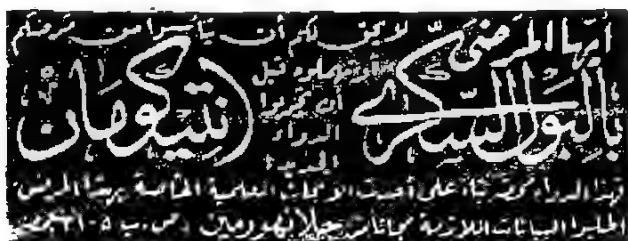 أيها المرضى
بالبول السكري
لا يحق لكم أن تيأسوا من مرضكم
أو تهملوه قبل
أن تجربوا
الدواء
الجديد
(انتيكومان)
فهذا الدواء على أحدث الابحاث العلمية الخاصة بهذا المرض
اطلبوا البيانات اللازمة مجانا من جلانهورمين ص. ب